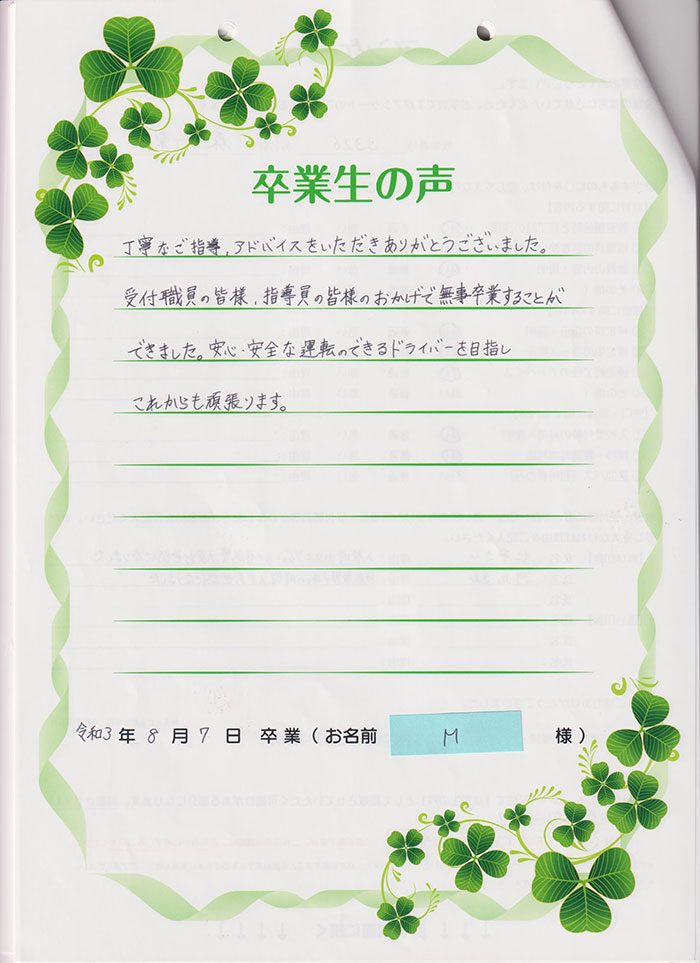 卒業生の声
丁寧なご指導,アドバイスをいただきありがとうございました。
受付職員の皆様,指導員の皆様のおかげで無事卒業することが
できました。安心・安全な運転のできるドライバーを目指し
これからも頑張ります。
令和3年8月7日 卒業(お名前 M 様)